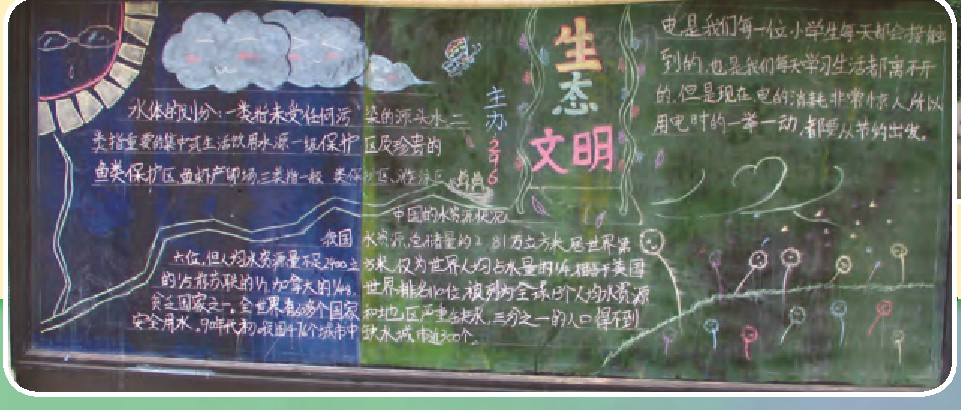 水体的划分:一类指未受任何污染的源头水,二
类指重要的集中式生活饮用水源一级保护区及珍贵的
鱼类保护区,鱼虾产卵场,三类指一般 类保护区、游泳区
主办
276
生态
文明
电是我们每一位小学生每天都会接触
到的,也是我们每天学习生活都离不开
的,但是现在,电的消耗非常惊人,所以
用电时的一举一动,都要从节约出发。
中国的水资源状况
我国 水资源总储量约2.81万立方米,居世界第
六位,但人均水资源量不足2400立方米,仅为世界人均占水量的1/4,相当于美国
的1/5,前苏联的1/7,加拿大的1/48,世界排名110位,被列为全球13个人均水资源
贫乏国家之一。全世界有60多个国家和地区严重缺水,三分之一的人口得不到
安全用水。90年代初,我国476个城市中缺水城市近300个。